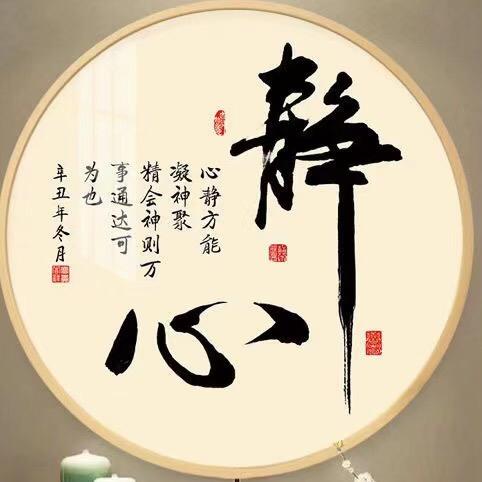 静心
心静方能
凝神聚
精会神则万
事通达可
为也
辛丑年冬月